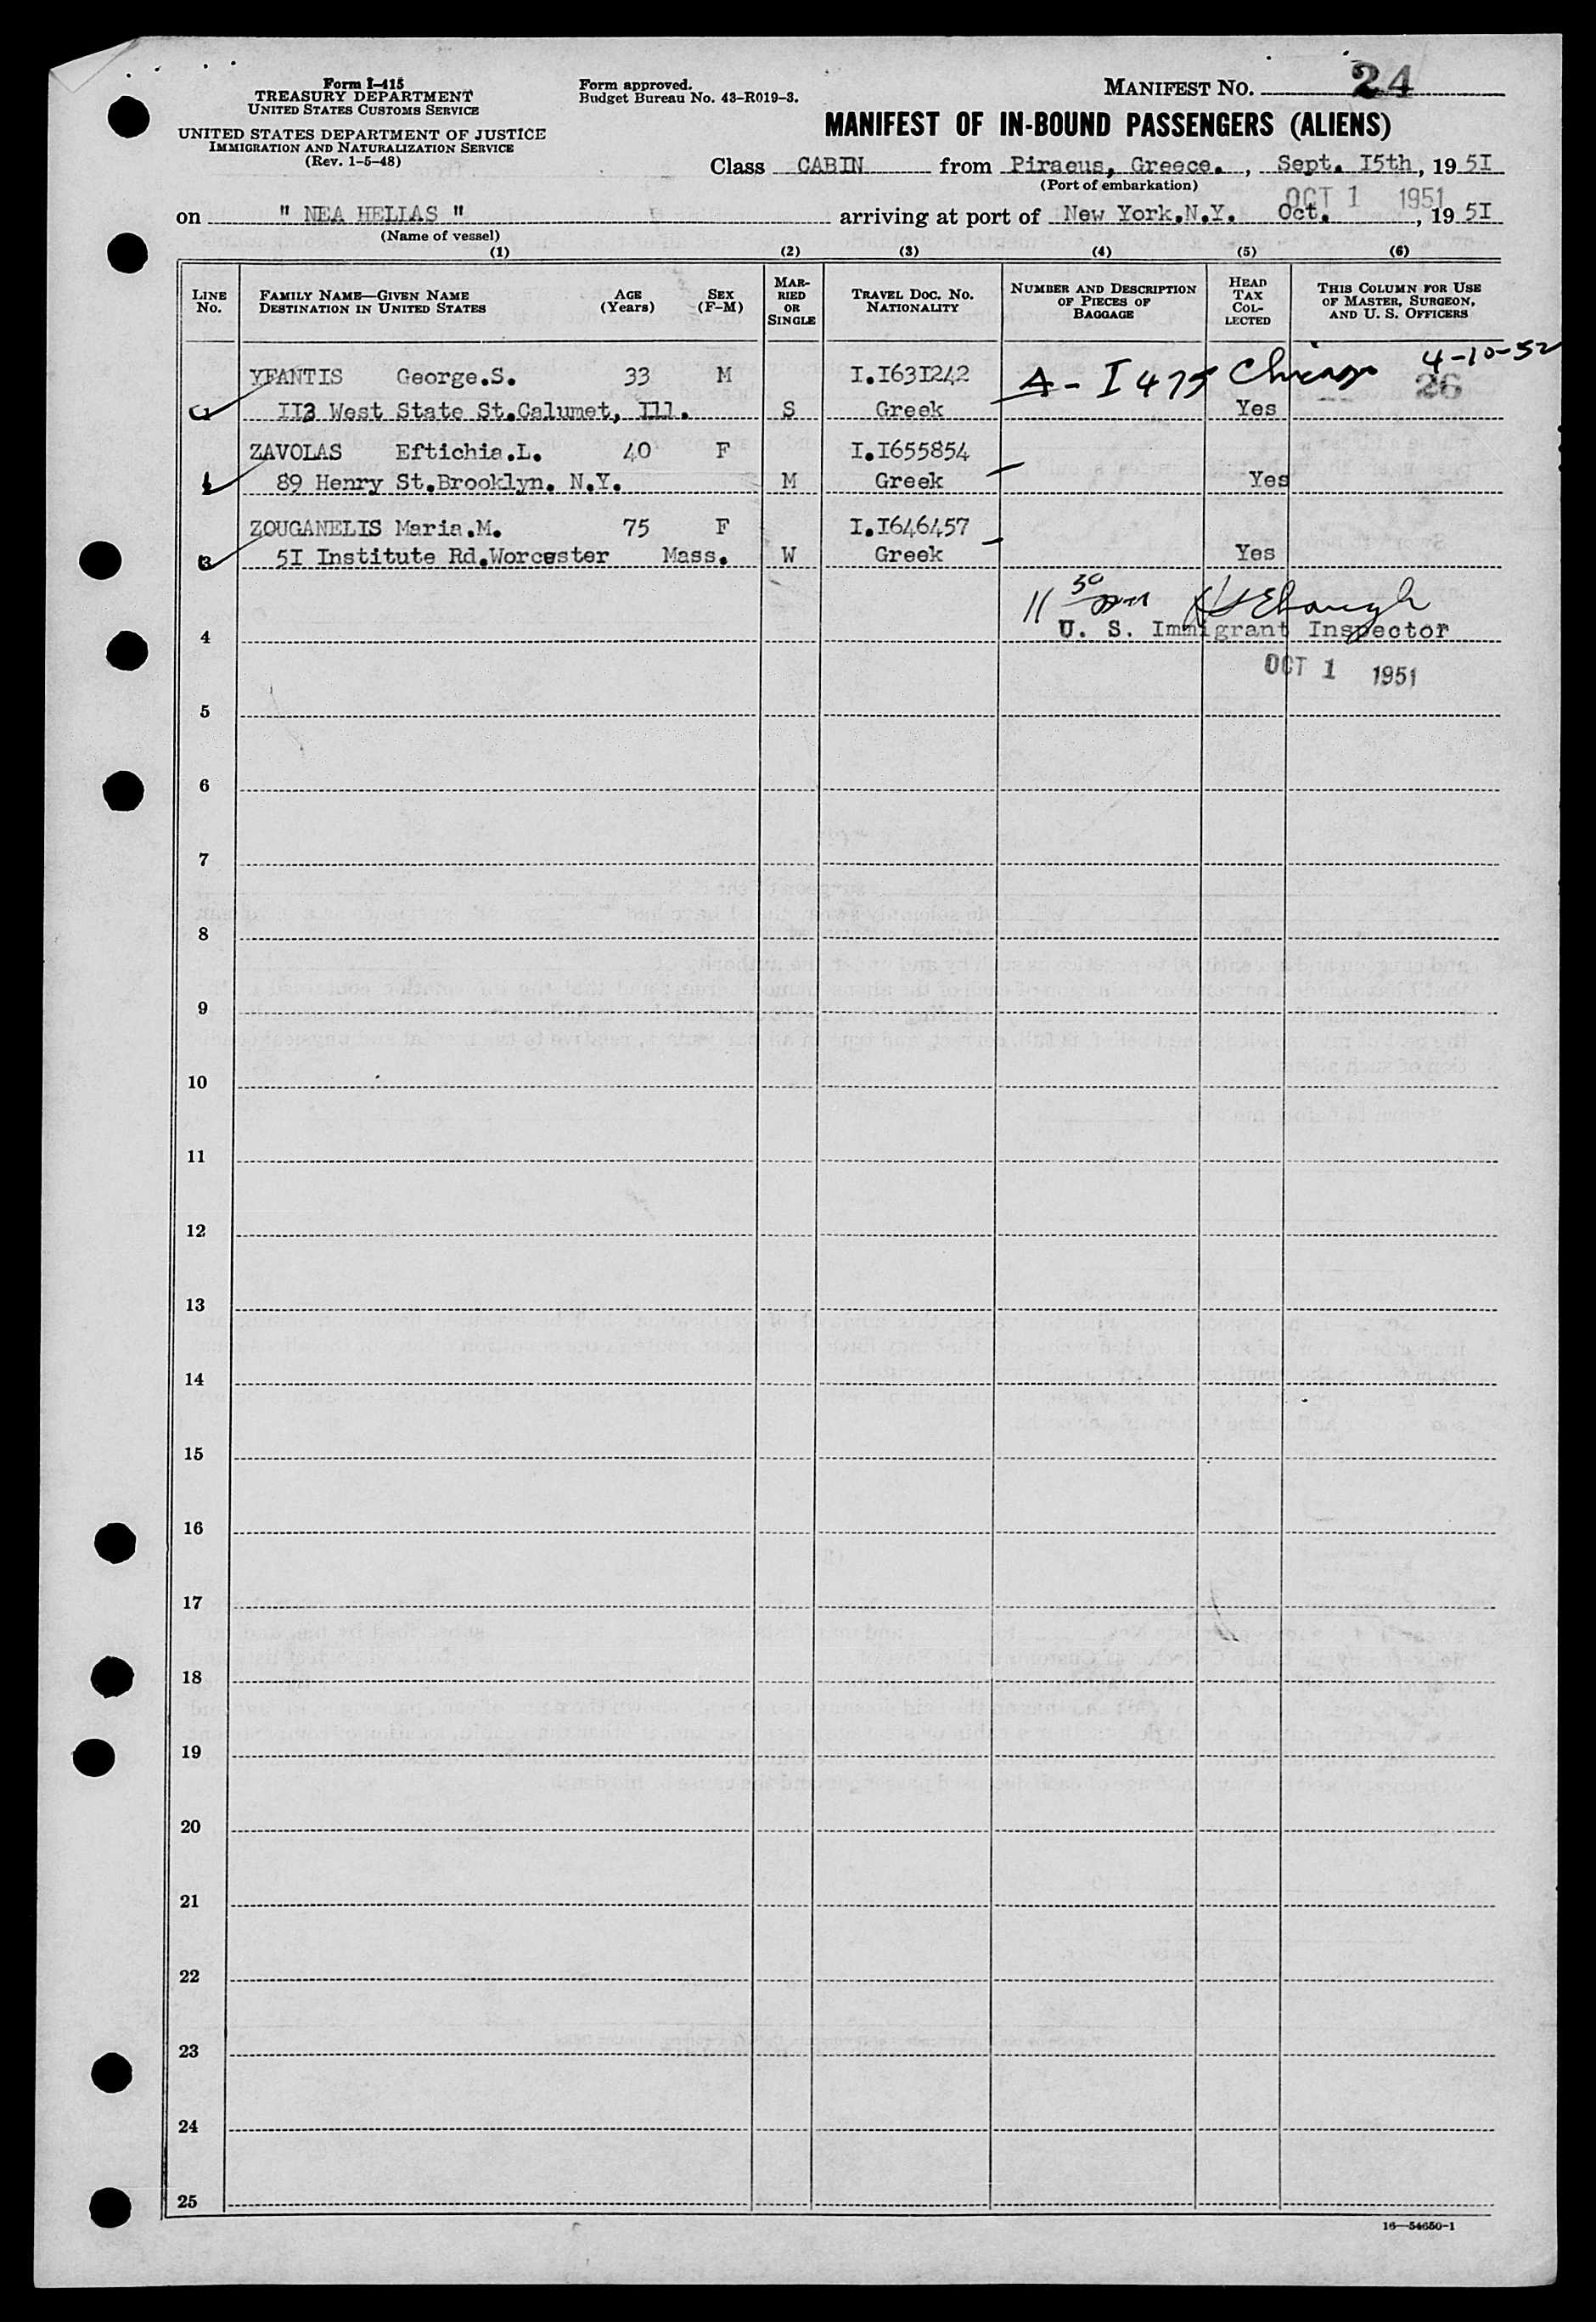 Form I-415
TREASURY DEPARTMENT
UNITED STATES CUSTOMS SERVICE
UNITED STATES DEPARTMENT OF JUSTICE
IMMIGRATION AND NATURALIZATION SERVICE
(Rev. 1-5-48)
Form approved.
Budget Bureau No. 43-R019-3.
MANIFEST NO. 24
MANIFEST OF IN-BOUND PASSENGERS (ALIENS)
Class CABIN from Piraeus, Greece., Sept. I5th, 19 5I
(Port of embarkation)
OCT 1 1951
on " NEA HELLAS " arriving at port of New York.N.Y. Oct. , 19 5I
(Name of vessel)
(1) (2) (3) (4) (5) (6)
LINE No. FAMILY NAME—GIVEN NAME DESTINATION IN UNITED STATES AGE (Years) SEX (F-M) MARRIED OR SINGLE TRAVEL DOC. NO. NATIONALITY NUMBER AND DESCRIPTION OF PIECES OF BAGGAGE HEAD TAX COLLECTED THIS COLUMN FOR USE OF MASTER, SURGEON, AND U. S. OFFICERS
YFANTIS George.S. 33 M I.I63I242 A-I 475 Chicago 4-10-52
26
1 II3 West State St.Calumet, Ill. S Greek Yes
ZAVOLAS Eftichia.L. 40 F I.I655854
89 Henry St.Brooklyn. N.Y. M Greek Yes
ZOUGANELIS Maria.M. 75 F I.I646457
3 5I Institute Rd.Worcester Mass. W Greek Yes
11 30
4 U. S. Immigrant Inspector
OCT 1 1951
5
6
7
8
9
10
11
12
13
14
15
16
17
18
19
20
21
22
23
24
25
16—54650-1